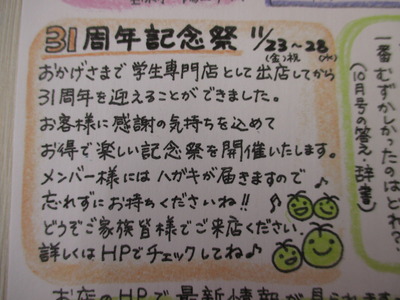 31周年記念祭 11/23~28
(金)祝 (水)
おかげさまで学生専門店として出店してから
31周年を迎えることができました。
お客様に感謝の気持ちを込めて
お得で楽しい記念祭を開催いたします。
メンバー様にはハガキが届きますので
忘れずにお持ちくださいね!!
どうぞご家族皆様でご来店ください。
詳しくはHPでチェックしてね♪
一番むずかしかったのはどれ?
(10月号の答え・辞書)
お店のHPで最新情報が見られます